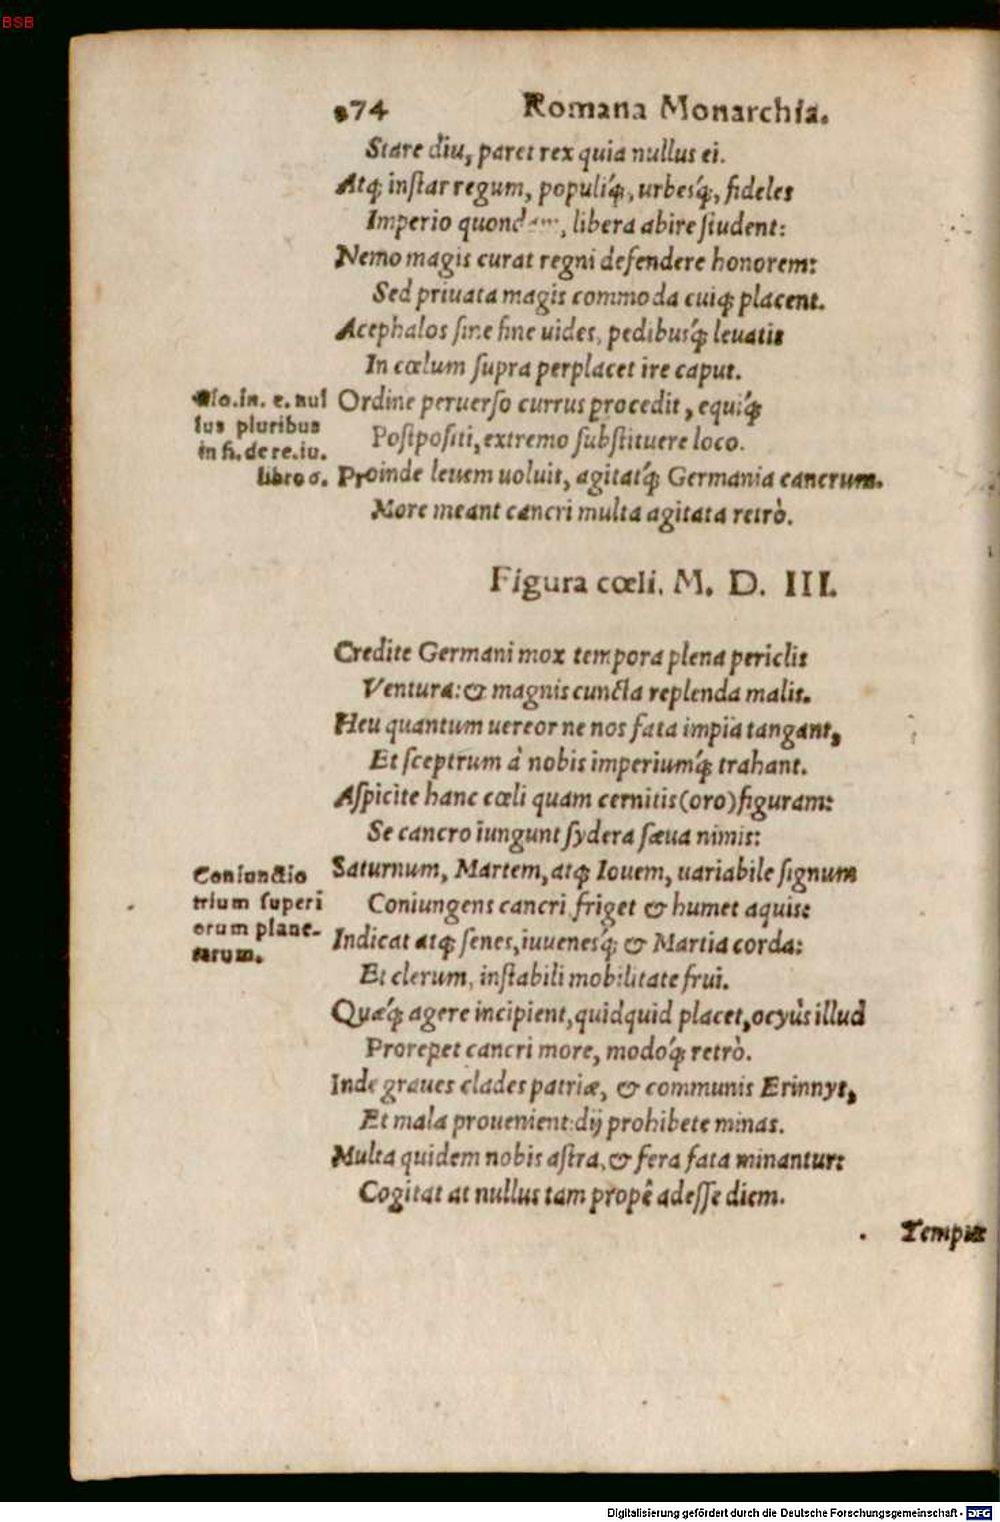 BSB
874 Romana Monarchia.
Stare diu, paret rex quia nullus ei.
Atq; inſtar regum, populiq́;, urbesq́;, fideles
Imperio quondam, libera abire ſtudent:
Nemo magis curat regni defendere honorem:
Sed priuata magis commoda cuiq; placent.
Acephalos ſine fine uides, pedibusq́; leuatis
In cœlum ſupra perplacet ire caput.
Ordine peruerſo currus procedit, equiq́;
Poſtpoſiti, extremo ſubſtituere loco.
Proinde leuem uoluit, agitatq́; Germania cancrum.
More meant cancri multa agitata retrò.
glo.in. e. nul
lus pluribus
in fi. de re. iu.
libro 6.
Figura cœli. M. D. III.
Credite Germani mox tempora plena periclis
Ventura: & magnis cuncta replenda malis.
Heu quantum uereor ne nos fata impia tangant,
Et ſceptrum à nobis imperiumq́; trahant.
Aſpicite hanc cœli quam cernitis (oro) figuram:
Se cancro iungunt ſydera ſæua nimis:
Saturnum, Martem, atq; Iouem, uariabile ſignum
Coniungens cancri friget & humet aquis:
Indicat atq; ſenes, iuuenesq́; & Martia corda:
Et clerum, inſtabili mobilitate frui.
Coniunctio
trium ſuperi
orum plane-
tarum.
Quæq́; agere incipient, quidquid placet, ocyùs illud
Prorepet cancri more, modoq́; retrò.
Inde graues clades patriæ, & communis Erinnys,
Et mala prouenient: dij prohibete minas.
Multa quidem nobis aſtra, & fera fata minantur:
Cogitat at nullus tam propè adeſſe diem.
Tempus
Digitalisierung gefördert durch die Deutsche Forschungsgemeinschaft - DFG